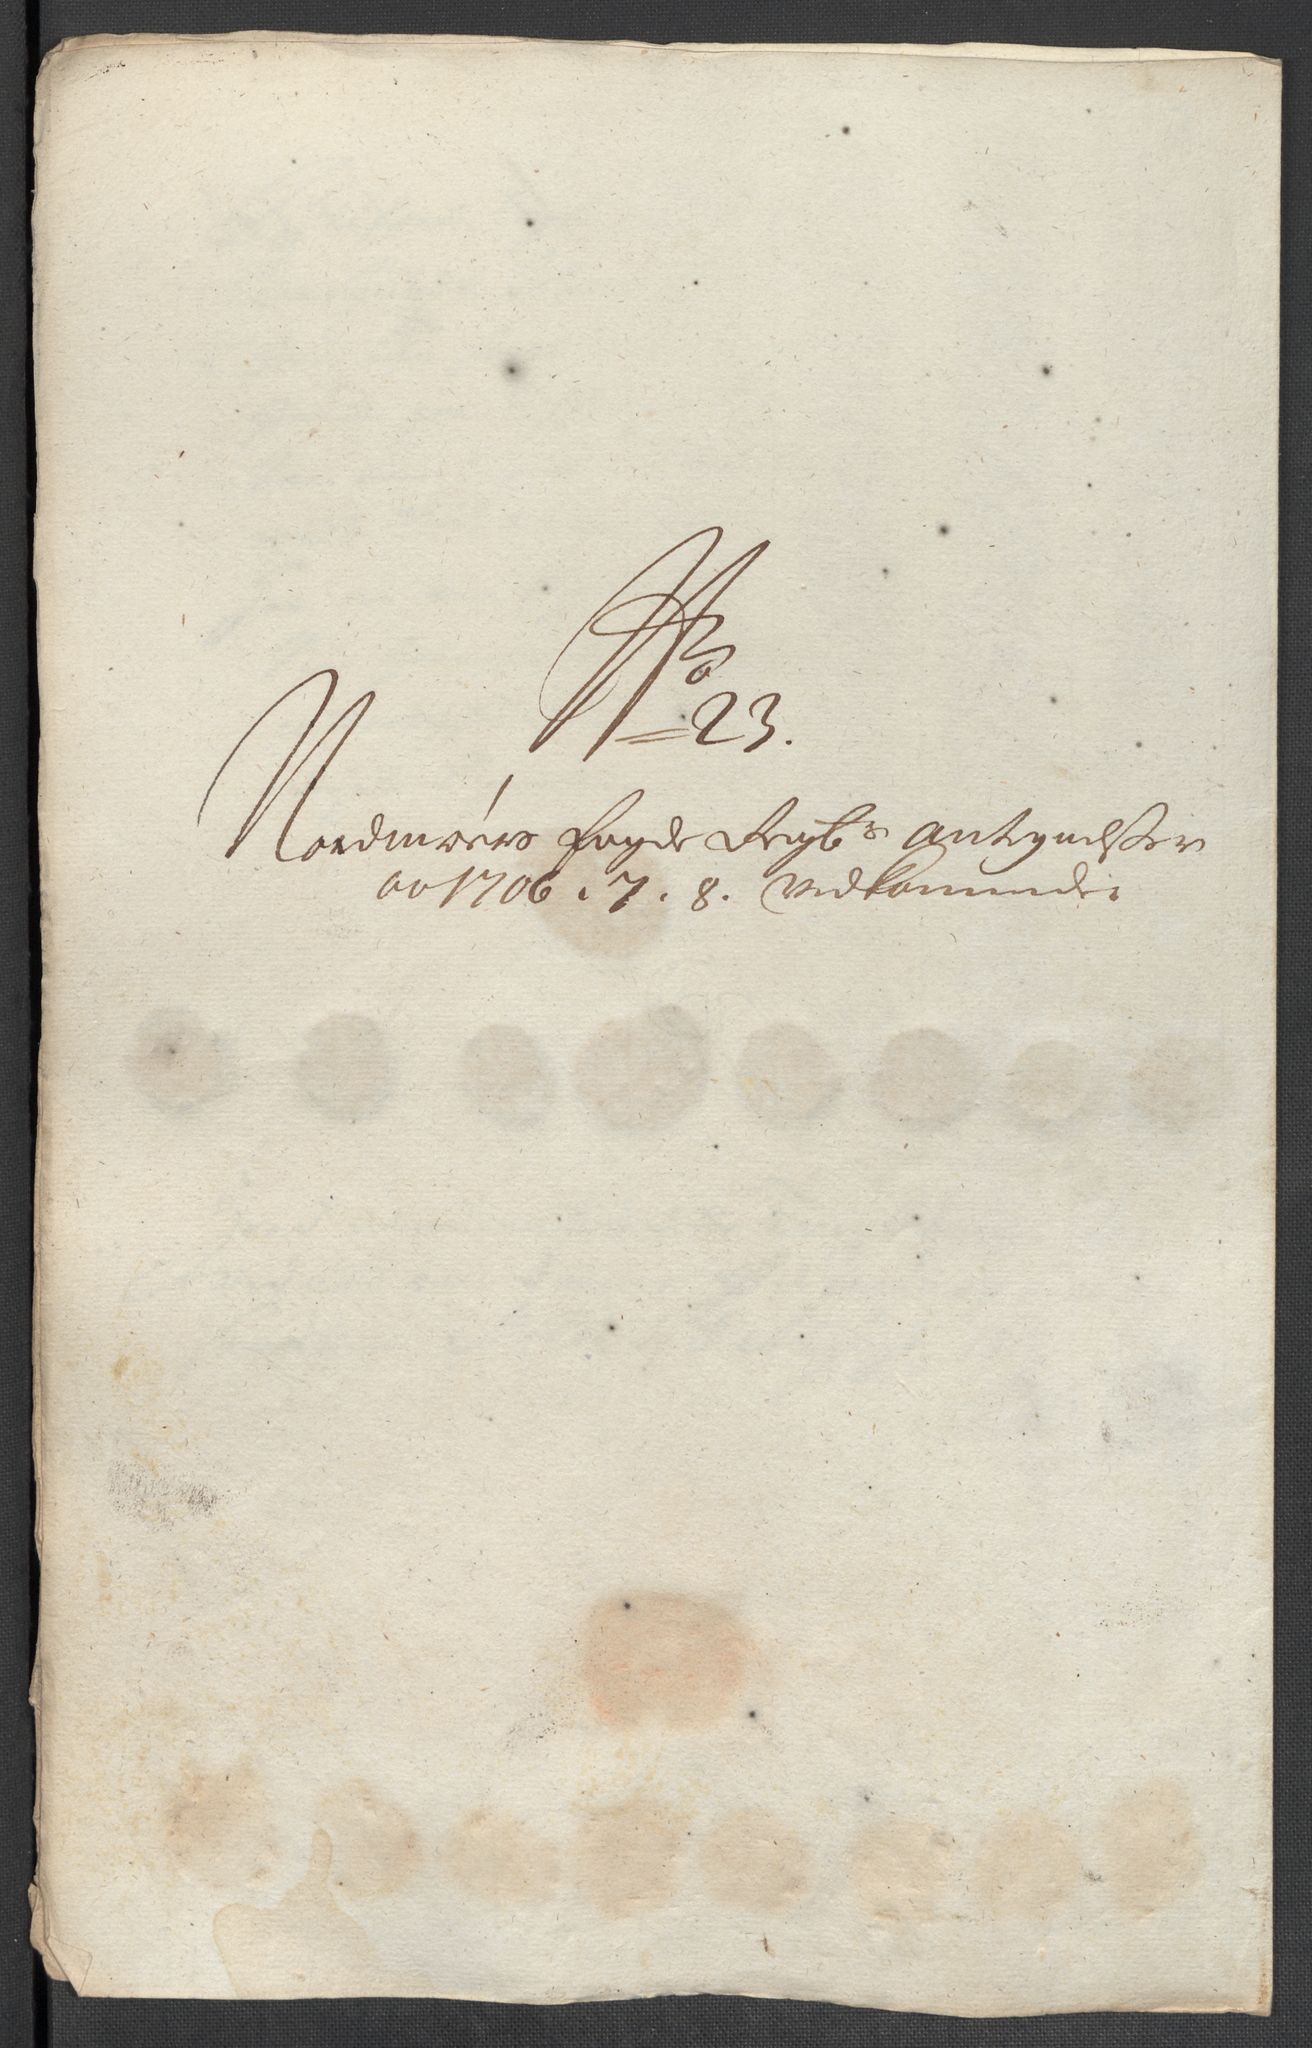 No
23.
Nordmørs fogde Regb:s Antegnelser
ao 1706. 7. 8. Vedkommende